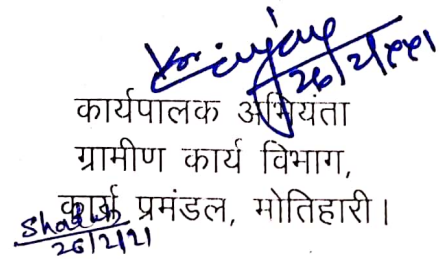 26/2/2021
कार्यपालक अभियंता
ग्रामीण कार्य विभाग,
कार्य प्रमंडल, मोतिहारी।
26/2/21